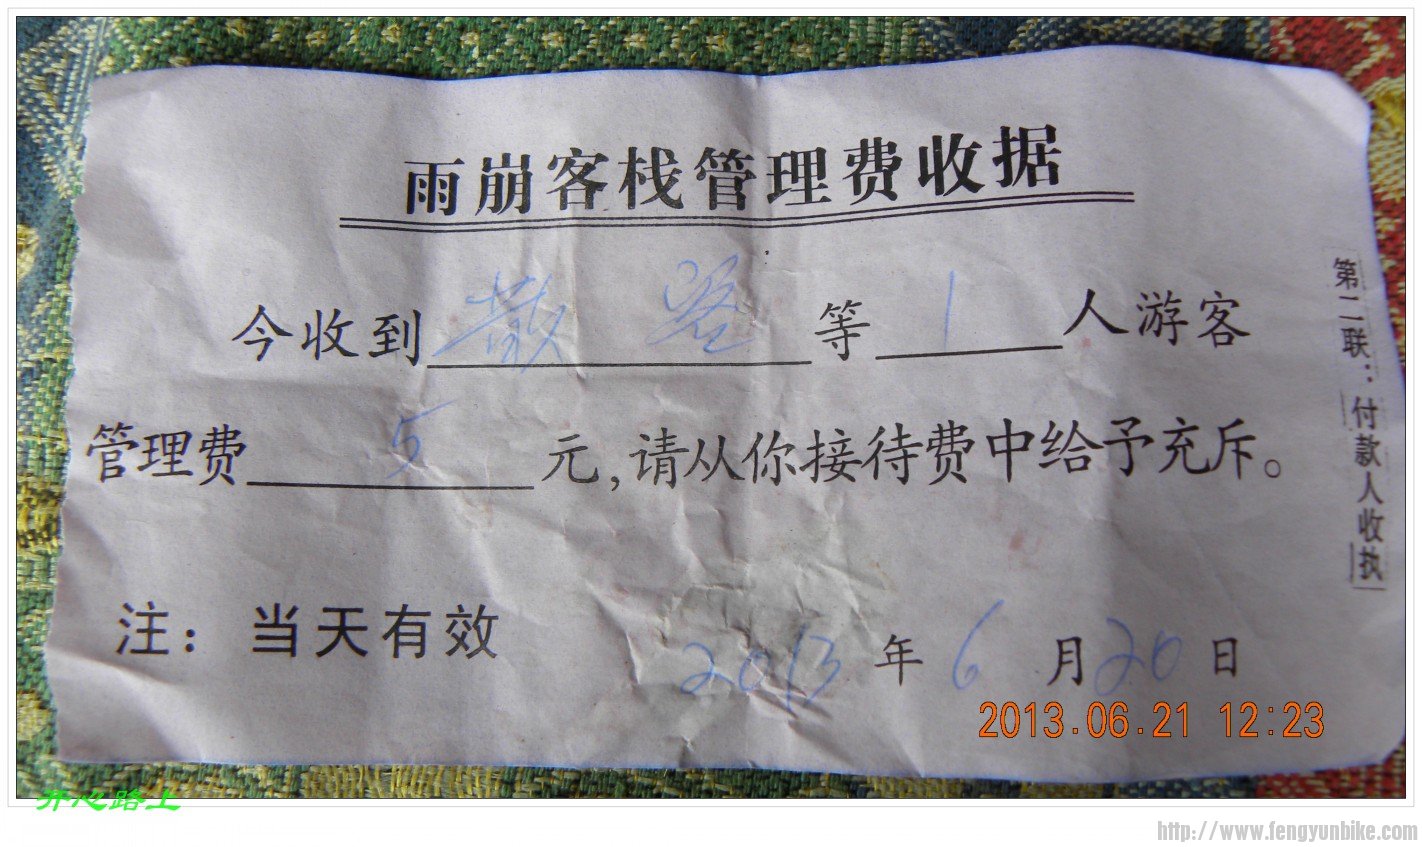 雨崩客栈管理费收据
今收到散客等1人游客
管理费5元,请从你接待费中给予充斥。
注：当天有效
2013年6月20日
第二联：付款人收执
2013.06.21 12:23
开心路上
http://www.fengyunbike.com